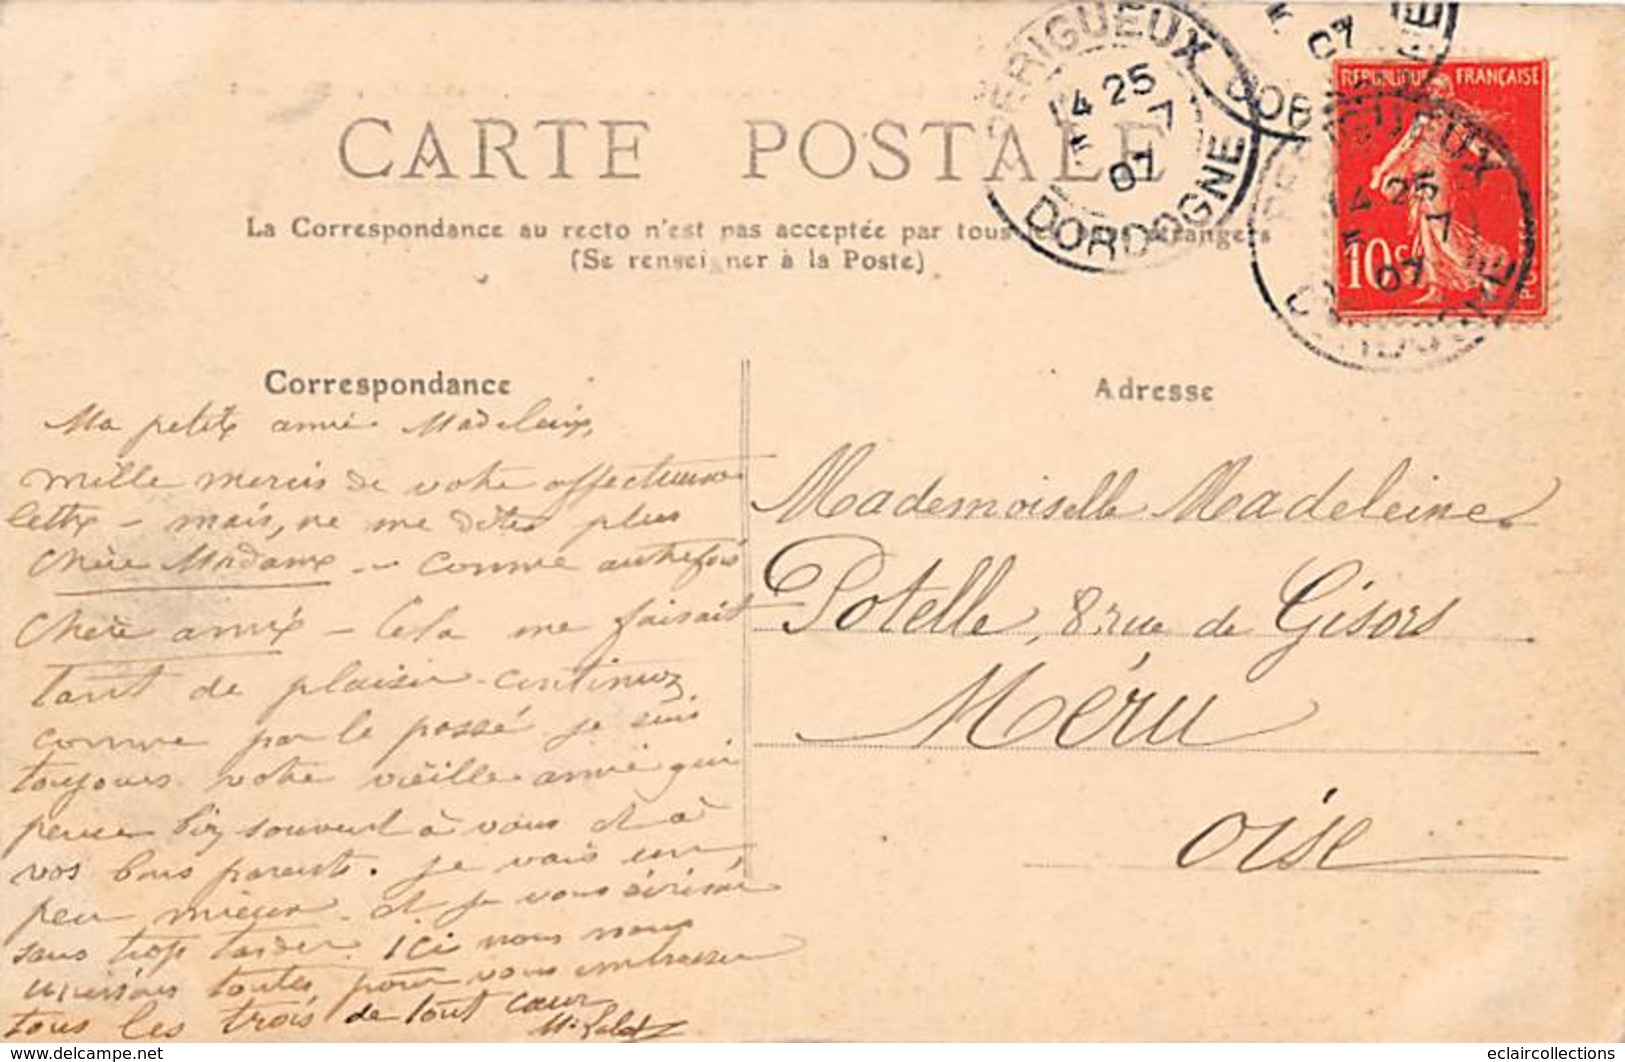 PÉRIGUEUX
4 25
7
07
DORDOGNE
07
DOR
E
REPUBLIQUE FRANÇAISE
10c
GUEUX
4 25
7
07
CARTE POSTALE
La Correspondance au recto n'est pas acceptée par tous pays étrangers
(Se renseigner à la Poste)
Correspondance
Ma petite amie Madeleine,
mille mercis de votre affectueuse
lettre – mais, ne me dites plus
chère Madame – comme autrefois
chère amie – Cela me faisait
tant de plaisir – continuez
comme par le passé je suis
toujours votre vieille amie qui
pense bien souvent à vous et à
vos bons parents. Je vais un
peu mieux – et je vous écrirai
sans trop tarder. Ici nous nous
unissons toutes pour vous embrasser
tous les trois de tout cœur
Adresse
Mademoiselle Madeleine
Potelle, 8 rue de Gisors
Méru
Oise
eclaircollections